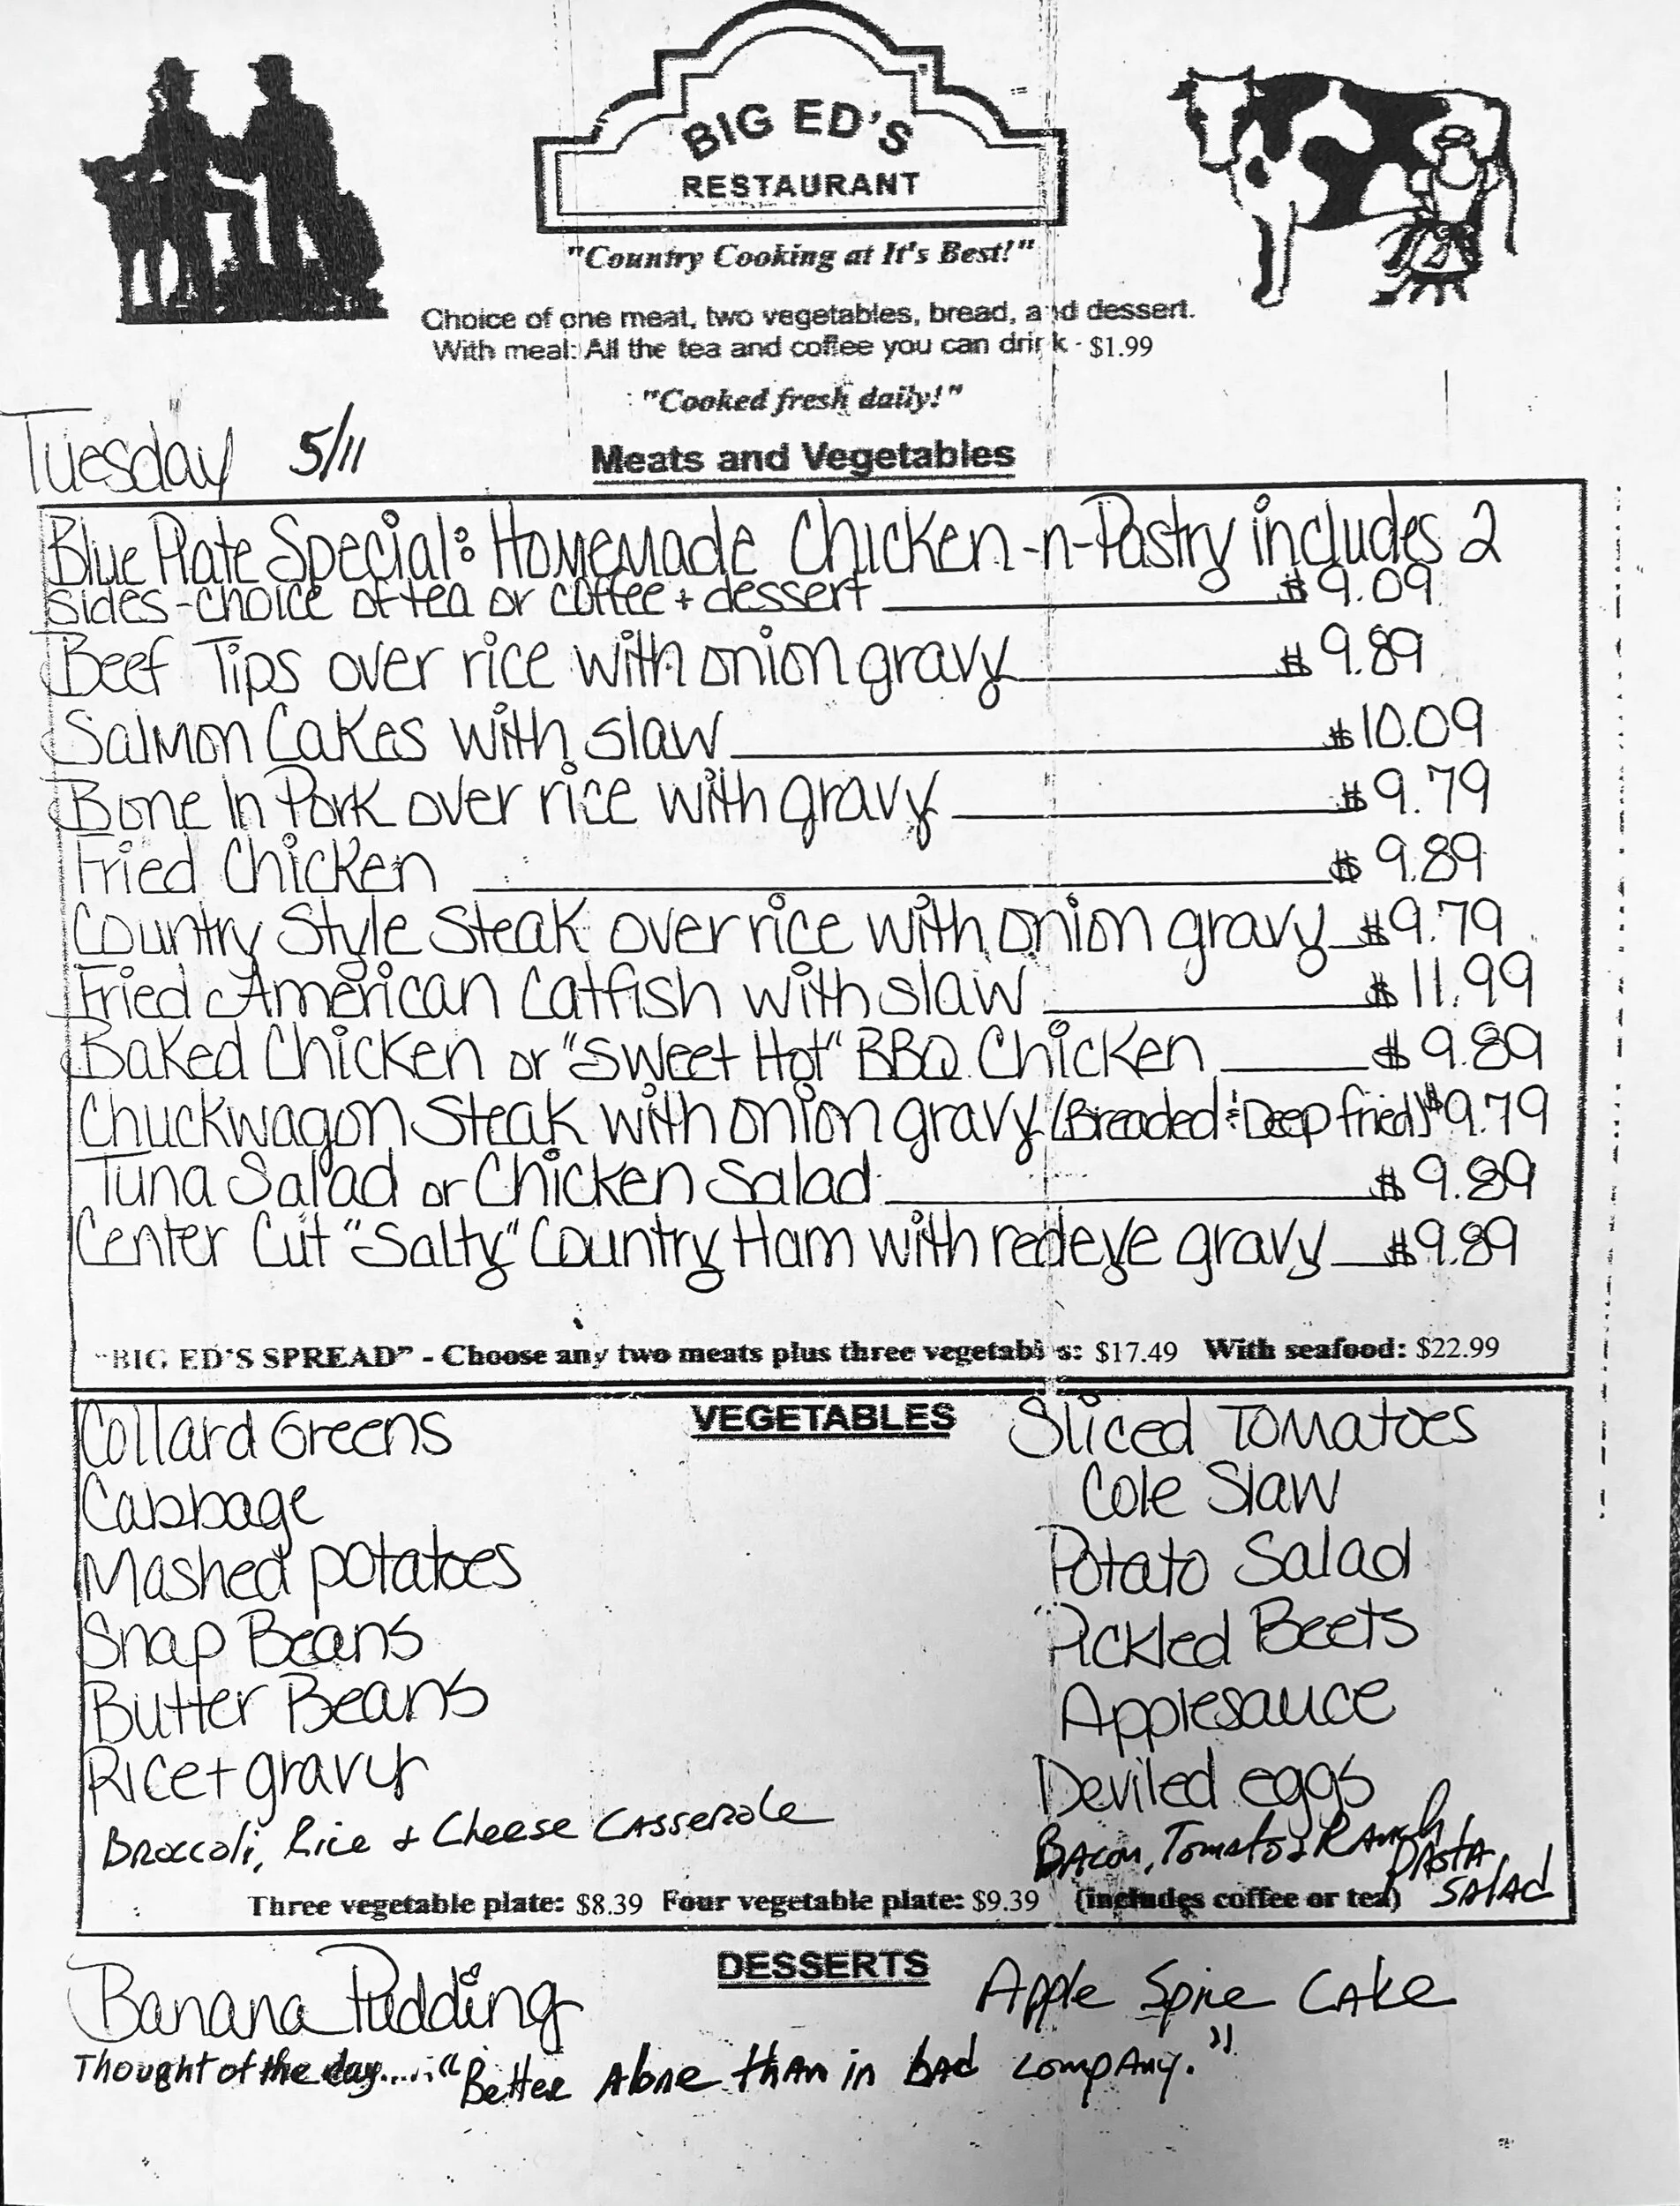 BIG ED'S
RESTAURANT
"Country Cooking at It's Best!"
Choice of one meat, two vegetables, bread, and dessert.
With meal: All the tea and coffee you can drink - $1.99
"Cooked fresh daily!"
Tuesday 5/11
Meats and Vegetables
Blue Plate Special: Homemade Chicken-n-Pastry includes 2
sides - choice of tea or coffee + dessert $9.09
Beef Tips over rice with onion gravy $9.89
Salmon Cakes with slaw $10.09
Bone In Pork over rice with gravy $9.79
Fried Chicken $9.89
Country Style Steak over rice with onion gravy $9.79
Fried American Catfish with slaw $11.99
Baked Chicken or "Sweet Hot" BBQ Chicken $9.89
Chuckwagon Steak with onion gravy (Breaded & Deep fried) $9.79
Tuna Salad or Chicken Salad $9.89
Center Cut "Salty" Country Ham with redeye gravy $9.89
"BIG ED'S SPREAD" - Choose any two meats plus three vegetables: $17.49 With seafood: $22.99
VEGETABLES
Collard Greens
Cabbage
Mashed potatoes
Snap Beans
Butter Beans
Rice + gravy
Broccoli, Rice & Cheese Casserole
Sliced Tomatoes
Cole Slaw
Potato Salad
Pickled Beets
Applesauce
Deviled eggs
Bacon, Tomato & Ranch
Pasta
Salad
Three vegetable plate: $8.39 Four vegetable plate: $9.39 (includes coffee or tea)
DESSERTS
Banana Pudding
Apple Spice Cake
Thought of the day..... "Better Alone than in bad company."